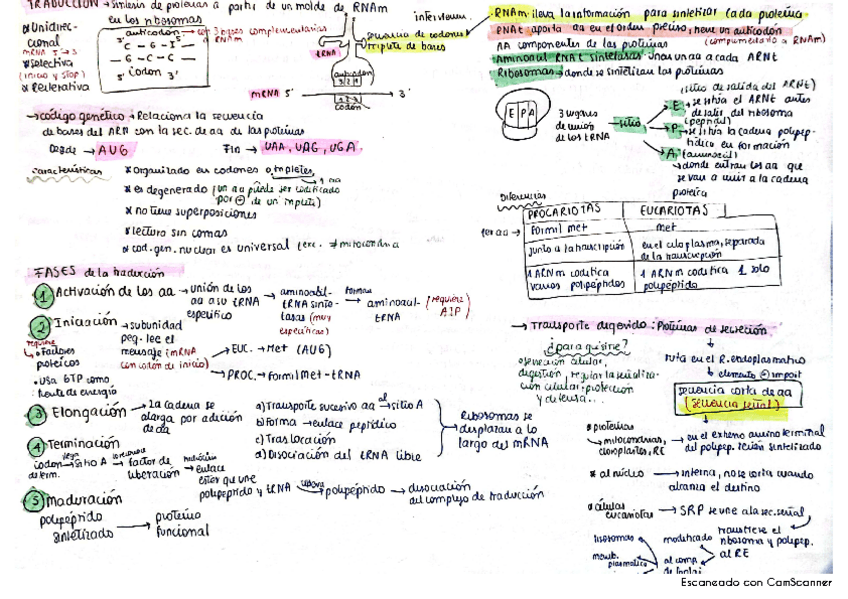 TRADUCCIÓN → Síntesis de proteínas a partir de un molde de RNAm
en los ribosomas
* Unidirec-
cional
mRNA 5' → 3'
* Selectiva
(inicio y stop)
* Reiterativa
anticodón → con 3 bases complementarias
a RNAm
3' 5'
C - G - I
- G - C - C -
5' codón 3'
intervienen
secuencia de codones
triplete de bases
tRNA
anticodon
3 2 1
mRNA 5' 3'
1 2 3
codon
RNAm lleva la información para sintetizar cada proteína
RNAt aporta aa en el orden preciso, tiene un anticodón
AA componentes de las proteínas (complementario a RNAm)
Aminoacil RNAt sintetasas unen un aa a cada ARNt
Ribosomas → donde se sintetizan las proteínas
E P A
3 lugares
de unión
de los tRNA
sitio
(sitio de salida del ARNt)
E → se sitúa el ARNt antes
de salir del ribosoma
(peptidil)
P → se sitúa la cadena polipep-
tídica en formación
A (aminoacil)
donde entran los aa que
se van a unir a la cadena
proteica
→ código genético → Relaciona la secuencia
de bases del ARN con la sec. de aa de las proteínas
Desde → AUG Fin → UAA, UAG, UGA
características
* Organizado en codones o tripletes
→ 1 aa
* es degenerado (un aa puede ser codificado
por ⊕ de un triplete)
* no tiene superposiciones
* lectura sin comas
* cod. gen. nuclear es universal (exc. ≠ mitocondria
Diferencias
PROCARIOTAS EUCARIOTAS
1er aa → Formil met met
junto a la transcripción en el citoplasma, separada
de la transcripción
1 ARNm codifica
varios polipéptidos
1 ARNm codifica 1 solo
polipéptido
FASES de la traducción
1 Activación de los aa → unión de los
aa a su tRNA
específico
→ aminoacil-
tRNA sinte-
tasas (muy
específicas)
forman
aminoacil-
tRNA
(requiere
ATP)
2 Iniciación → subunidad
peq. lee el
mensaje (mRNA
con codón de inicio)
requiere
• Factores
proteicos
• Usa GTP como
fuente de energía
EUC. → Met (AUG)
PROC. → Formil Met-tRNA
3 Elongación → La cadena se
alarga por adición
de aa
a) Transporte sucesivo aa al sitio A
b) Forma → enlace peptídico
c) Traslocación
d) Disociación del tRNA libre
Ribosomas se
desplazan a lo
largo del mRNA
4 Terminación
codon → sitio A → factor de
de term. liberación
→ enlace
éster que une
polipéptido y tRNA
libera
→ polipéptido → disociación
del complejo de traducción
5 Maduración
polipéptido
sintetizado
→ proteína
funcional
→ Transporte dirigido: Proteínas de secreción
¿para qué sirve?
digestión, regular la señaliza-
ción celular, protección
y defensa...
ruta en el R. endoplasmático
secuencia corta de aa
(secuencia señal)
* proteínas
mitocondrias,
cloroplastos, RE
→ en el extremo amino terminal
del polipep. recién sintetizado
* al núcleo → interna, no se corta cuando
alcanza el destino
* células
eucariotas → SRP se une a la sec. señal
transfiere el
ribosoma y polipep.
al RE
modificado
al comp.
de Golgi
lisosomas
memb.
plasmática
Escaneado con CamScanner